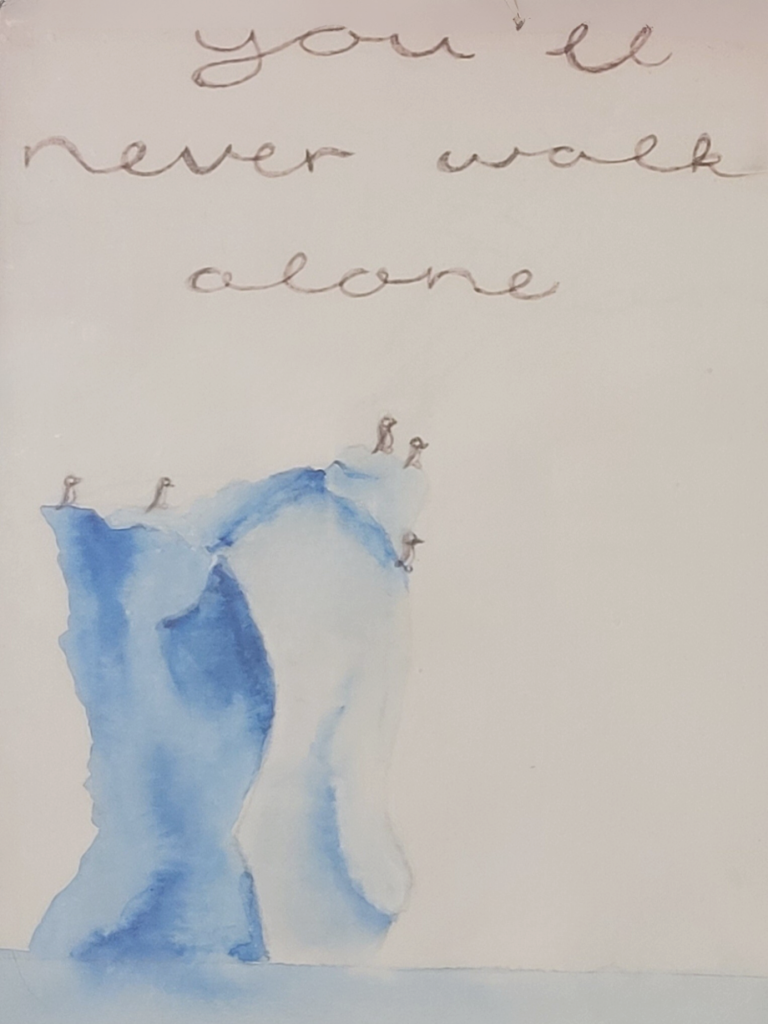 you'll
never walk
alone